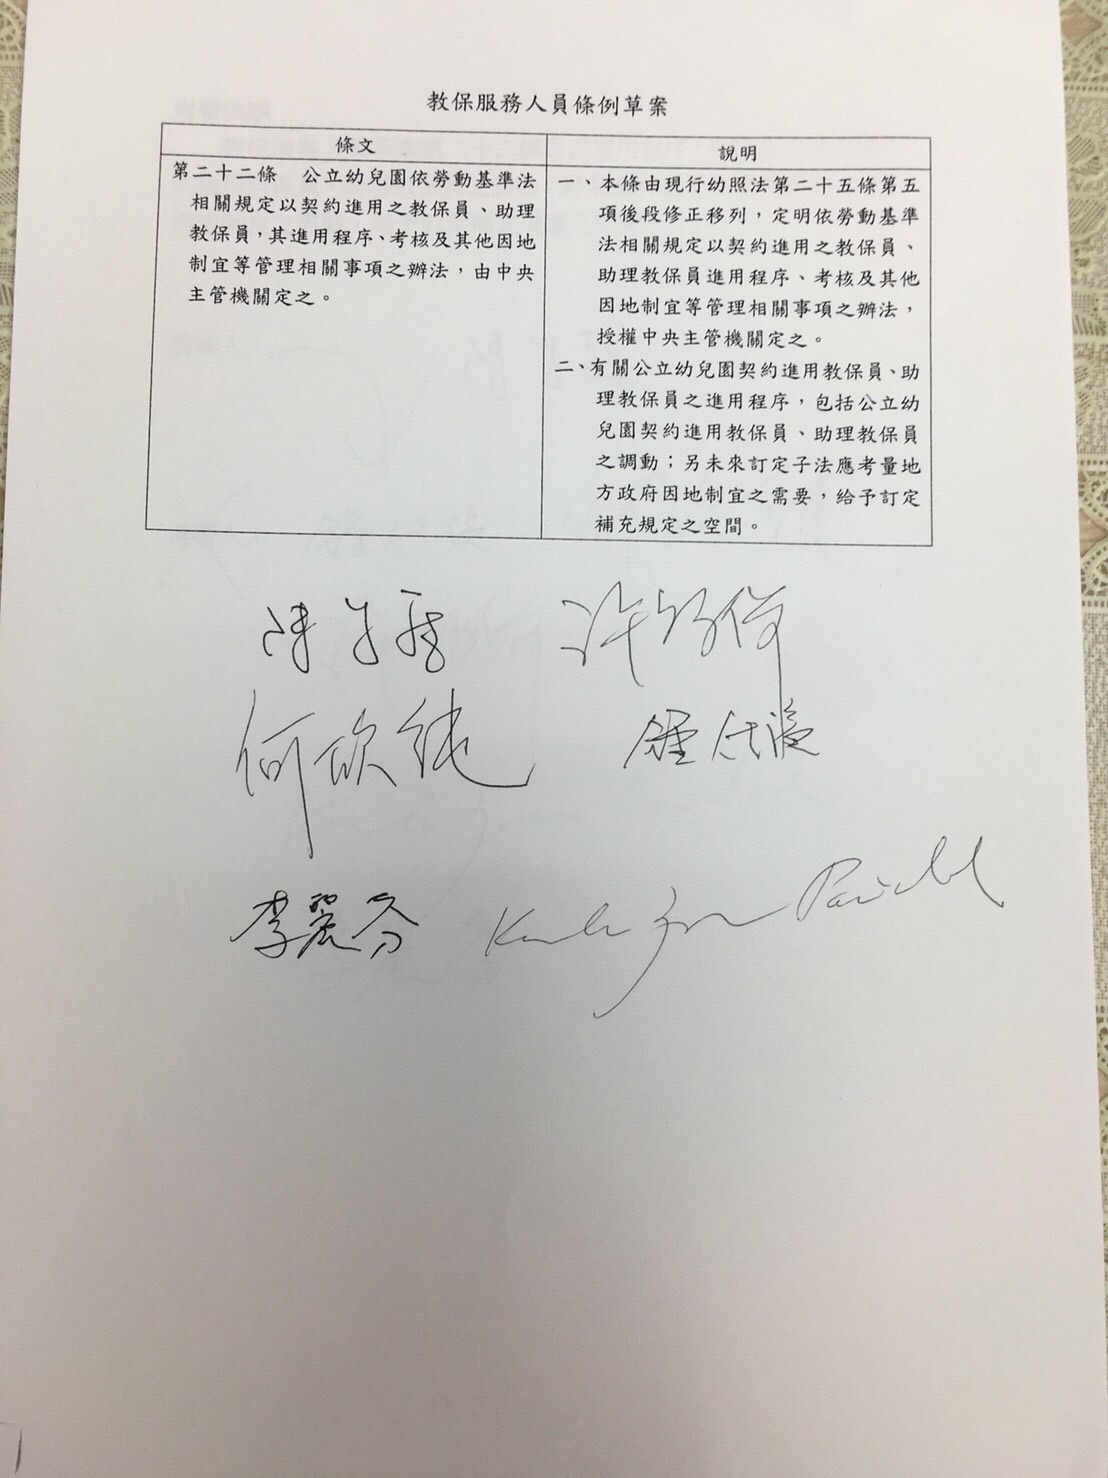 教保服務人員條例草案
條文
第二十二條　公立幼兒園依勞動基準法
相關規定以契約進用之教保員、助理
教保員，其進用程序、考核及其他因地
制宜等管理相關事項之辦法，由中央
主管機關定之。
說明
一、本條由現行幼照法第二十五條第五
項後段修正移列，定明依勞動基準
法相關規定以契約進用之教保員、
助理教保員進用程序、考核及其他
因地制宜等管理相關事項之辦法，
授權中央主管機關定之。
二、有關公立幼兒園契約進用教保員、助
理教保員之進用程序，包括公立幼
兒園契約進用教保員、助理教保員
之調動；另未來訂定子法應考量地
方政府因地制宜之需要，給予訂定
補充規定之空間。
何欣純
李麗芬